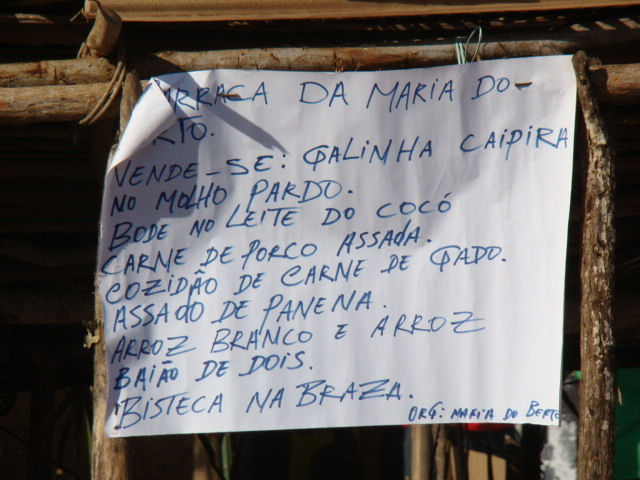 ARRACA DA MARIA DO
RTO.
VENDE-SE: GALINHA CAIPIRA
NO MOLHO PARDO.
BODE NO LEITE DO COCÓ
CARNE DE PORCO ASSADA.
COZIDÃO DE CARNE DE GADO.
ASSADO DE PANENA.
ARROZ BRANCO E ARROZ
BAIÃO DE DOIS.
BISTECA NA BRAZA.
ORG: MARIA DO BERTO